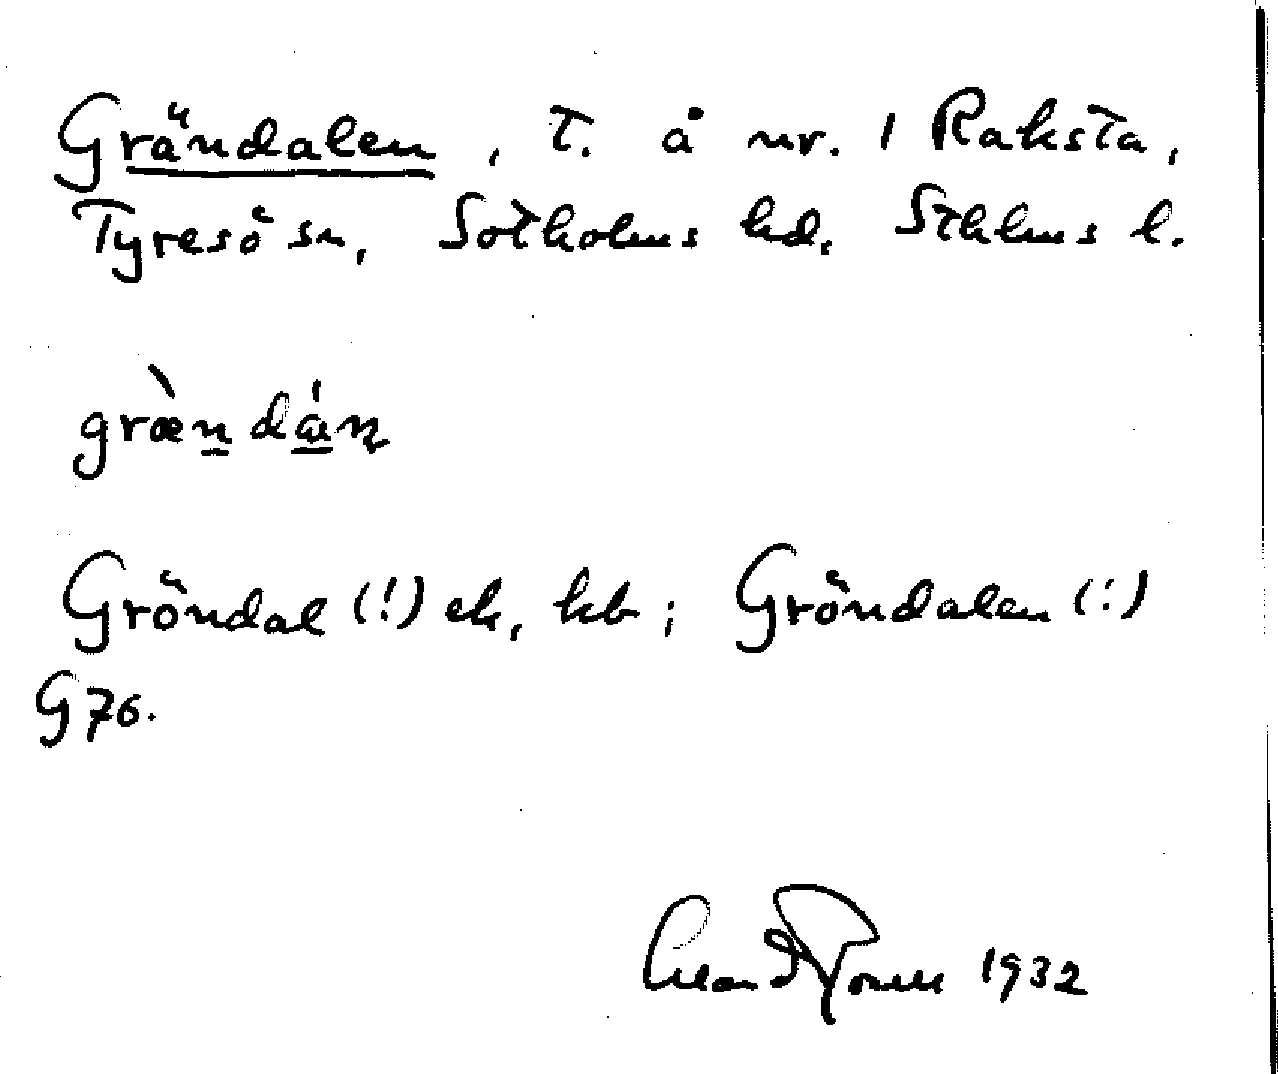 Grändalen, t. å nr. 1 Raksta,
Tyresö sn, Sotholms hd, Sthlms l.
græ̀ndán
Gröndal (!) ek, kb; Gröndalen (!)
G76.
1932